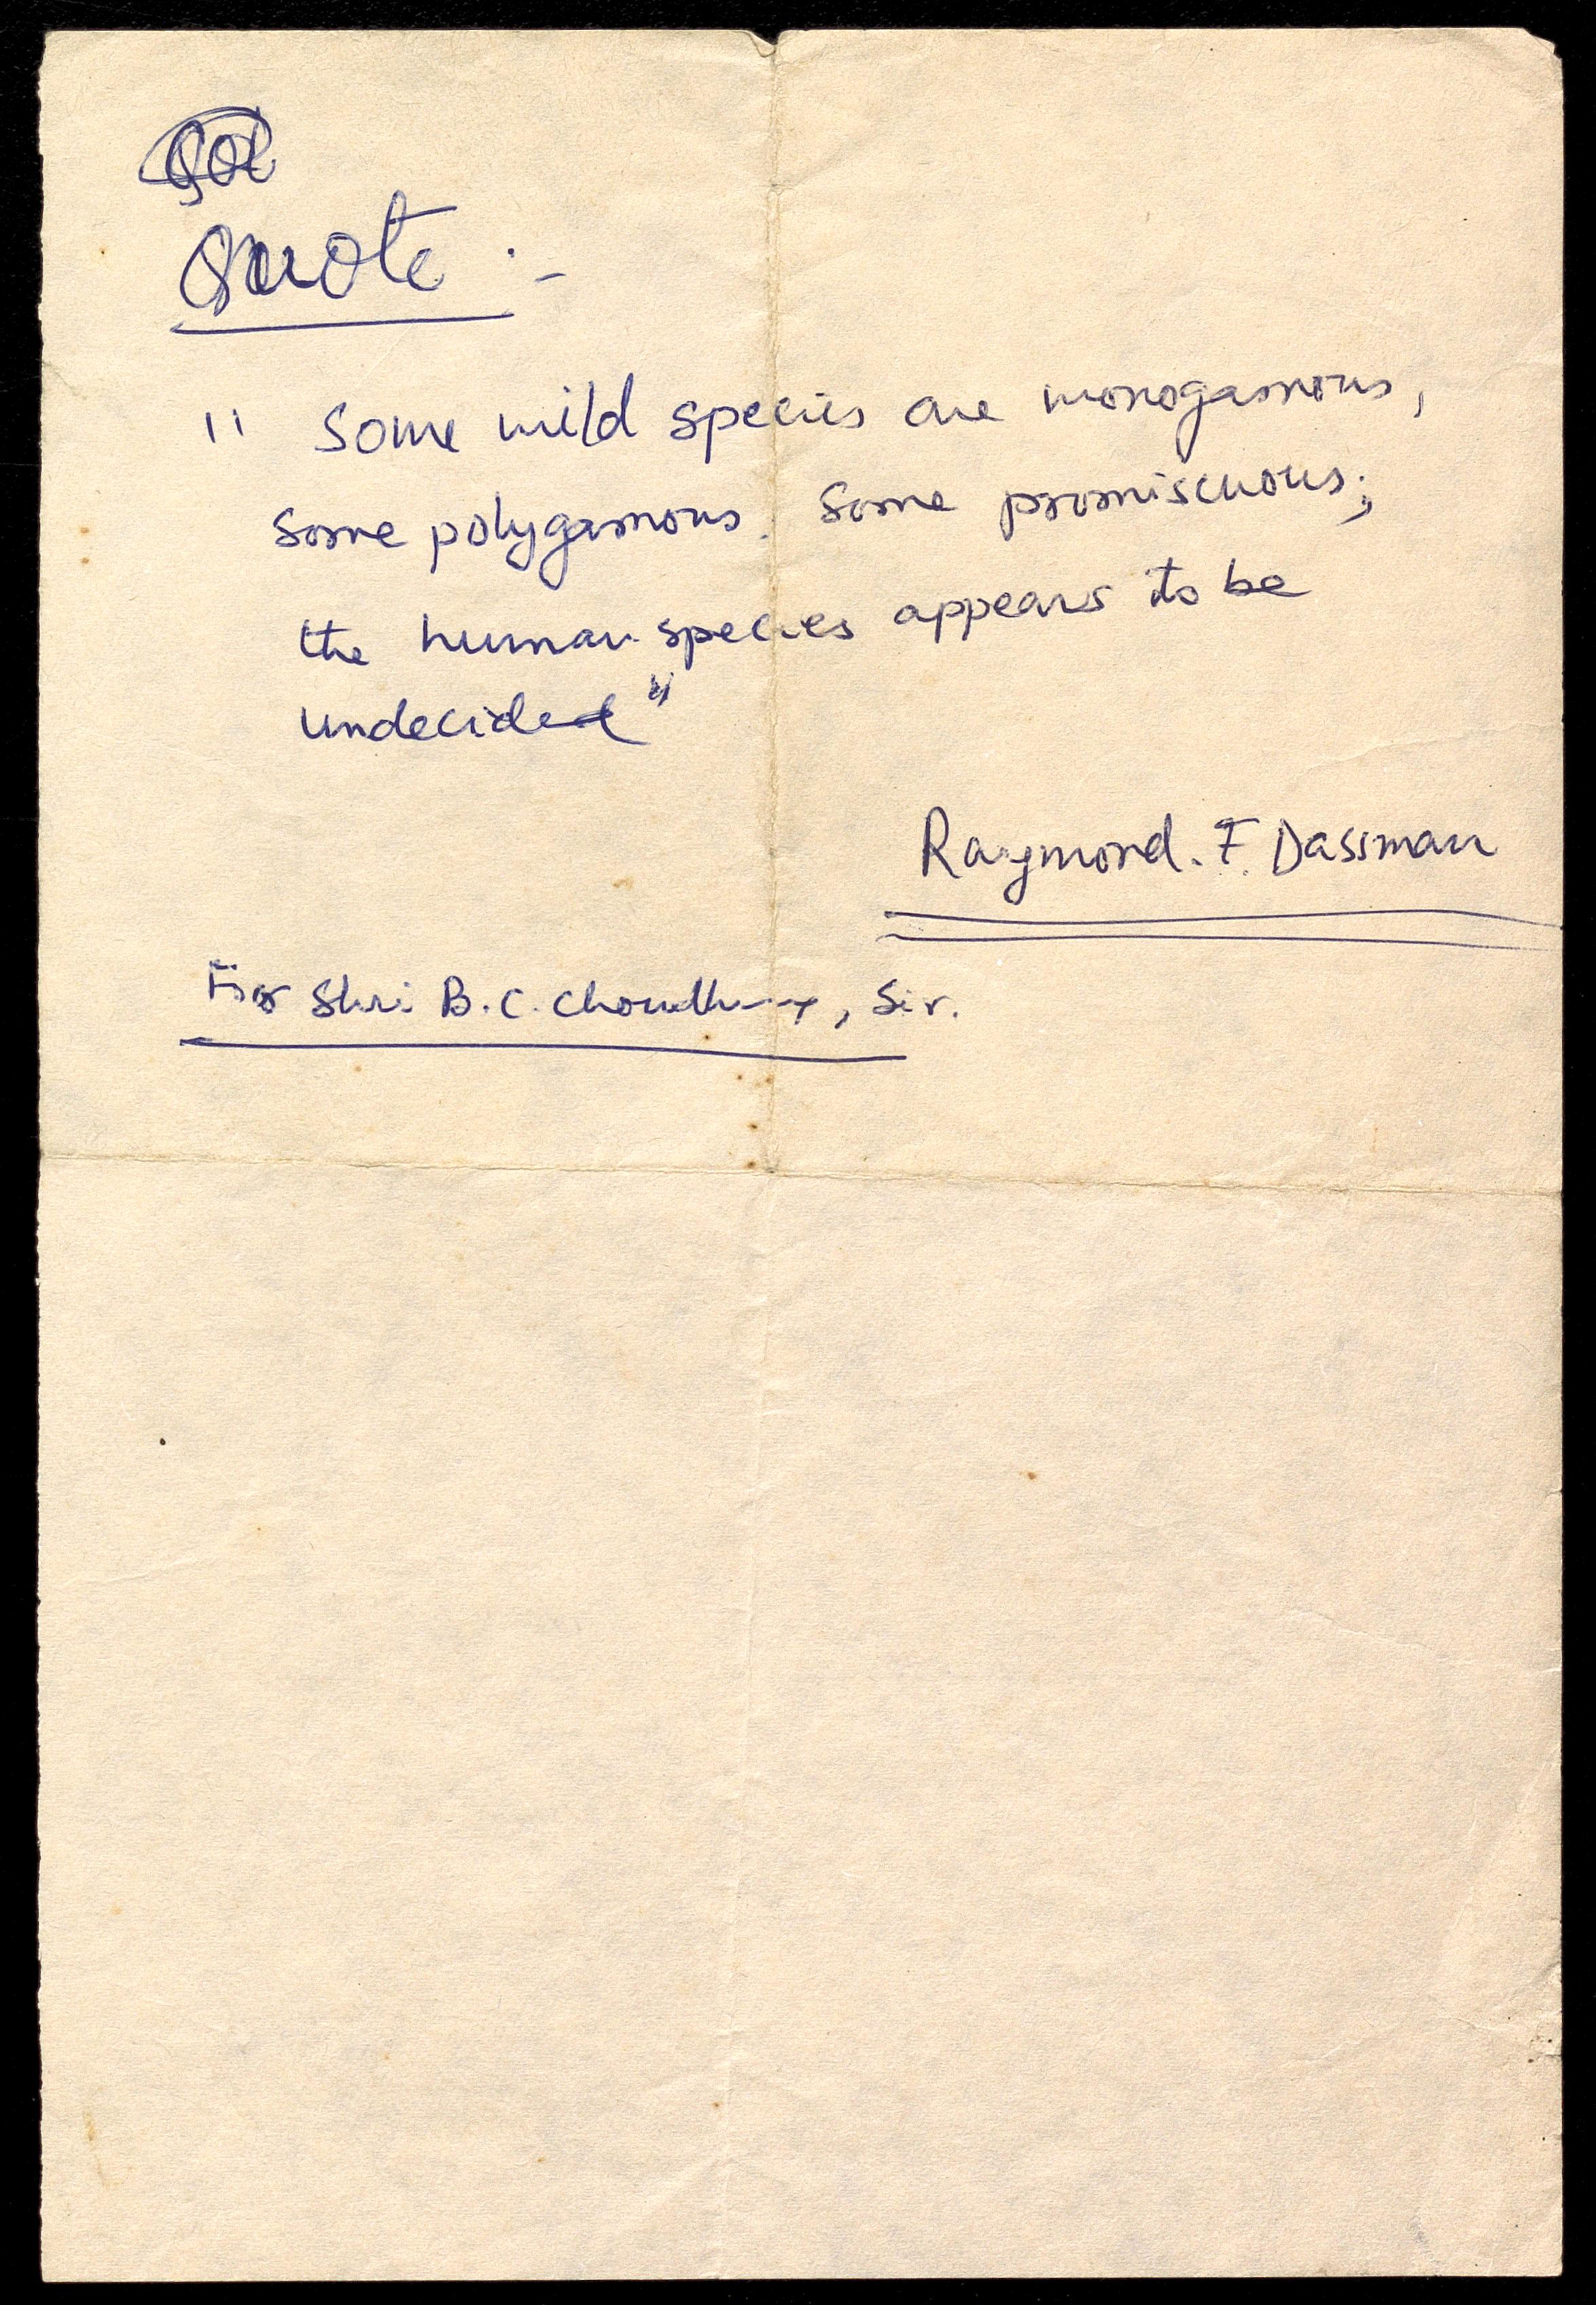 Quote :-
" Some wild species are monogamous,
Some polygamous. Some promiscuous;
the human species appears to be
undecided"
Raymond. F. Dassman
For Shri B.C. Choudhury, Sir.